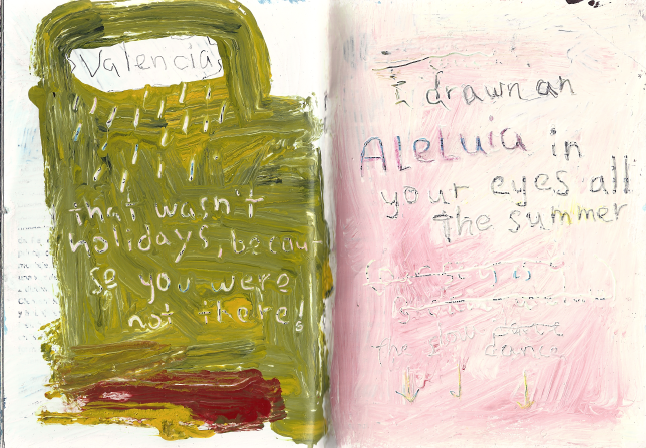 Valencia
that wasn't
holidays, becau
se you were
not there!
I drawn an
ALeLuia in
your eyes all
The summer
the
dance